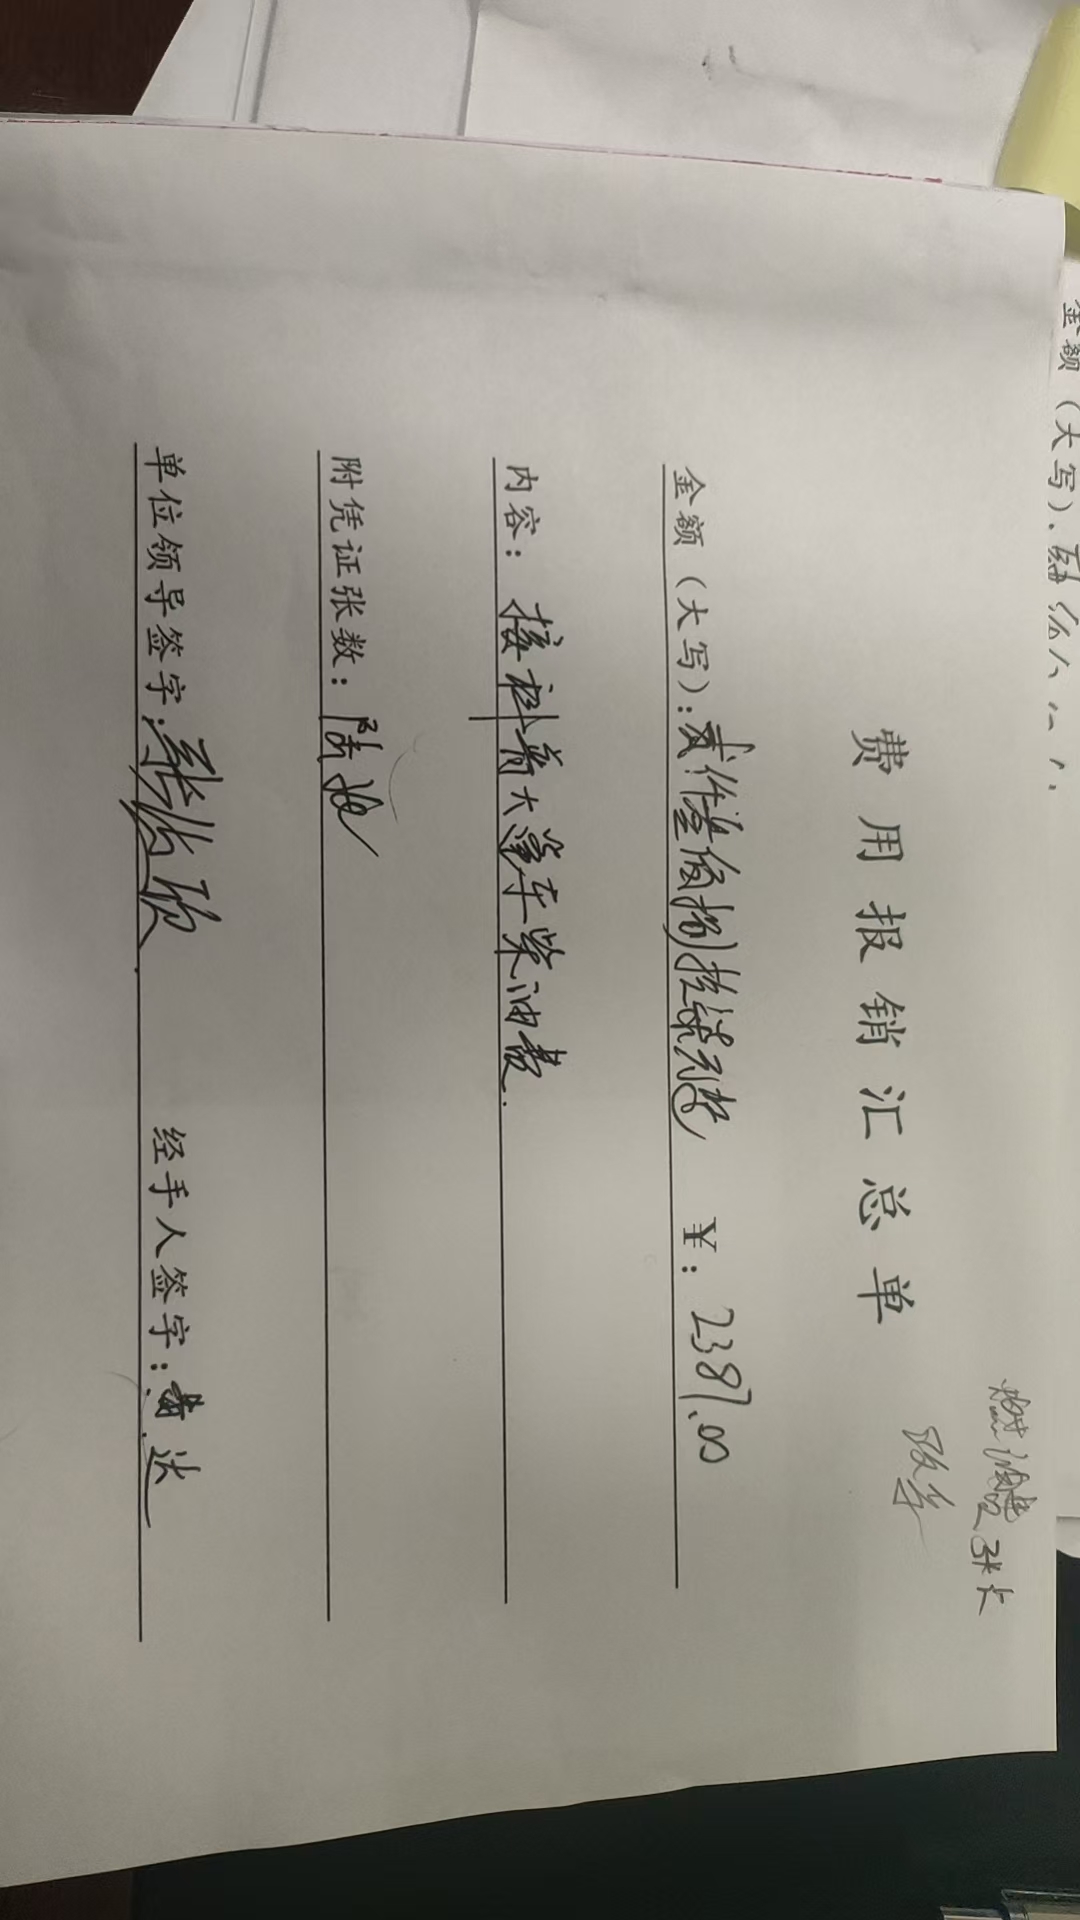 费用报销汇总单
金额（大写）：贰仟叁佰捌拾柒元整 ￥：2387.00
内容：接科普大篷车柴油费.
附凭证张数：陆张
单位领导签字：
经手人签字：黄达
金额（大写）